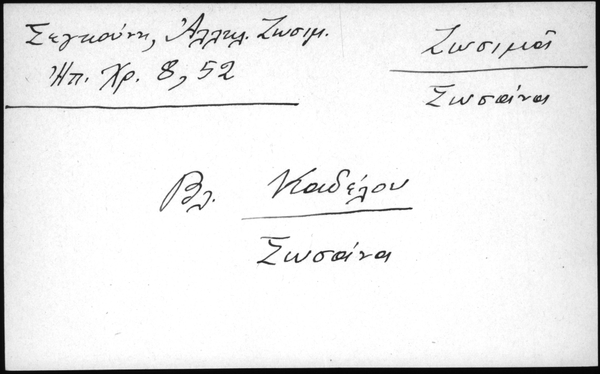 Σεγκούνη, Ἀλληλ. Ζωσιμ.
Ἠπ. Χρ. 8, 52
Ζωσιμᾶ
Σωσάνα
Βλ. Καδέλου
Σωσάνα